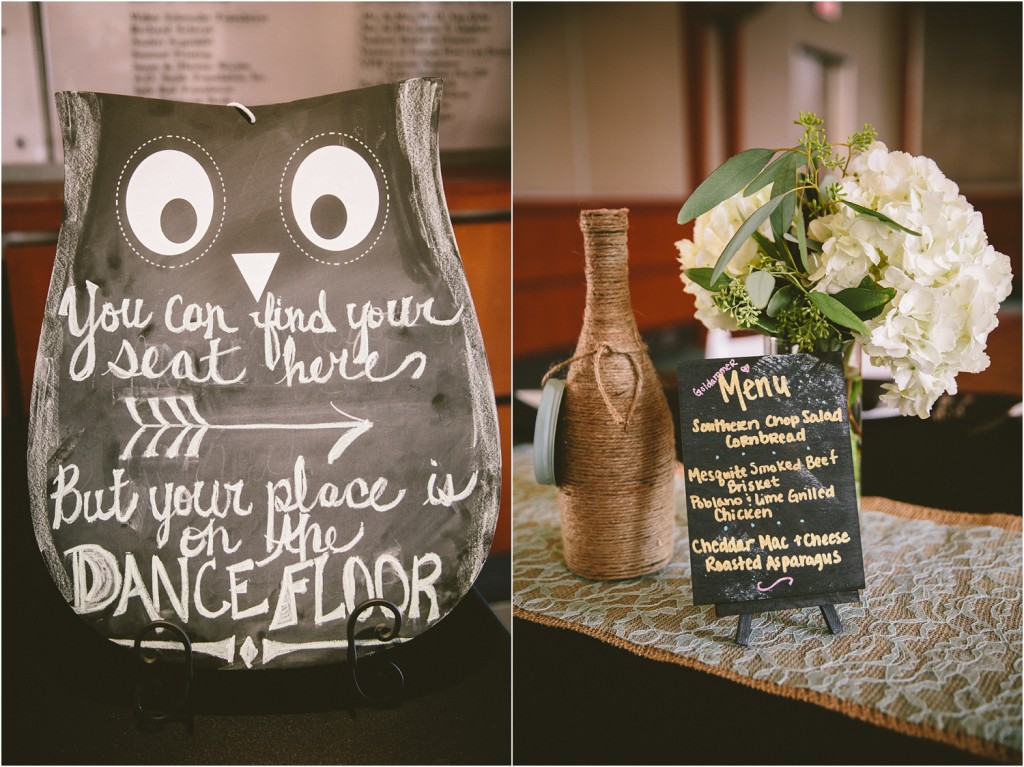 You can find your
seat here
But your place is
on the
DANCE FLOOR
Goldammer
Menu
Southern Chop Salad
Cornbread
Mesquite Smoked Beef
Brisket
Poblano & Lime Grilled
Chicken
Cheddar Mac + Cheese
Roasted Asparagus